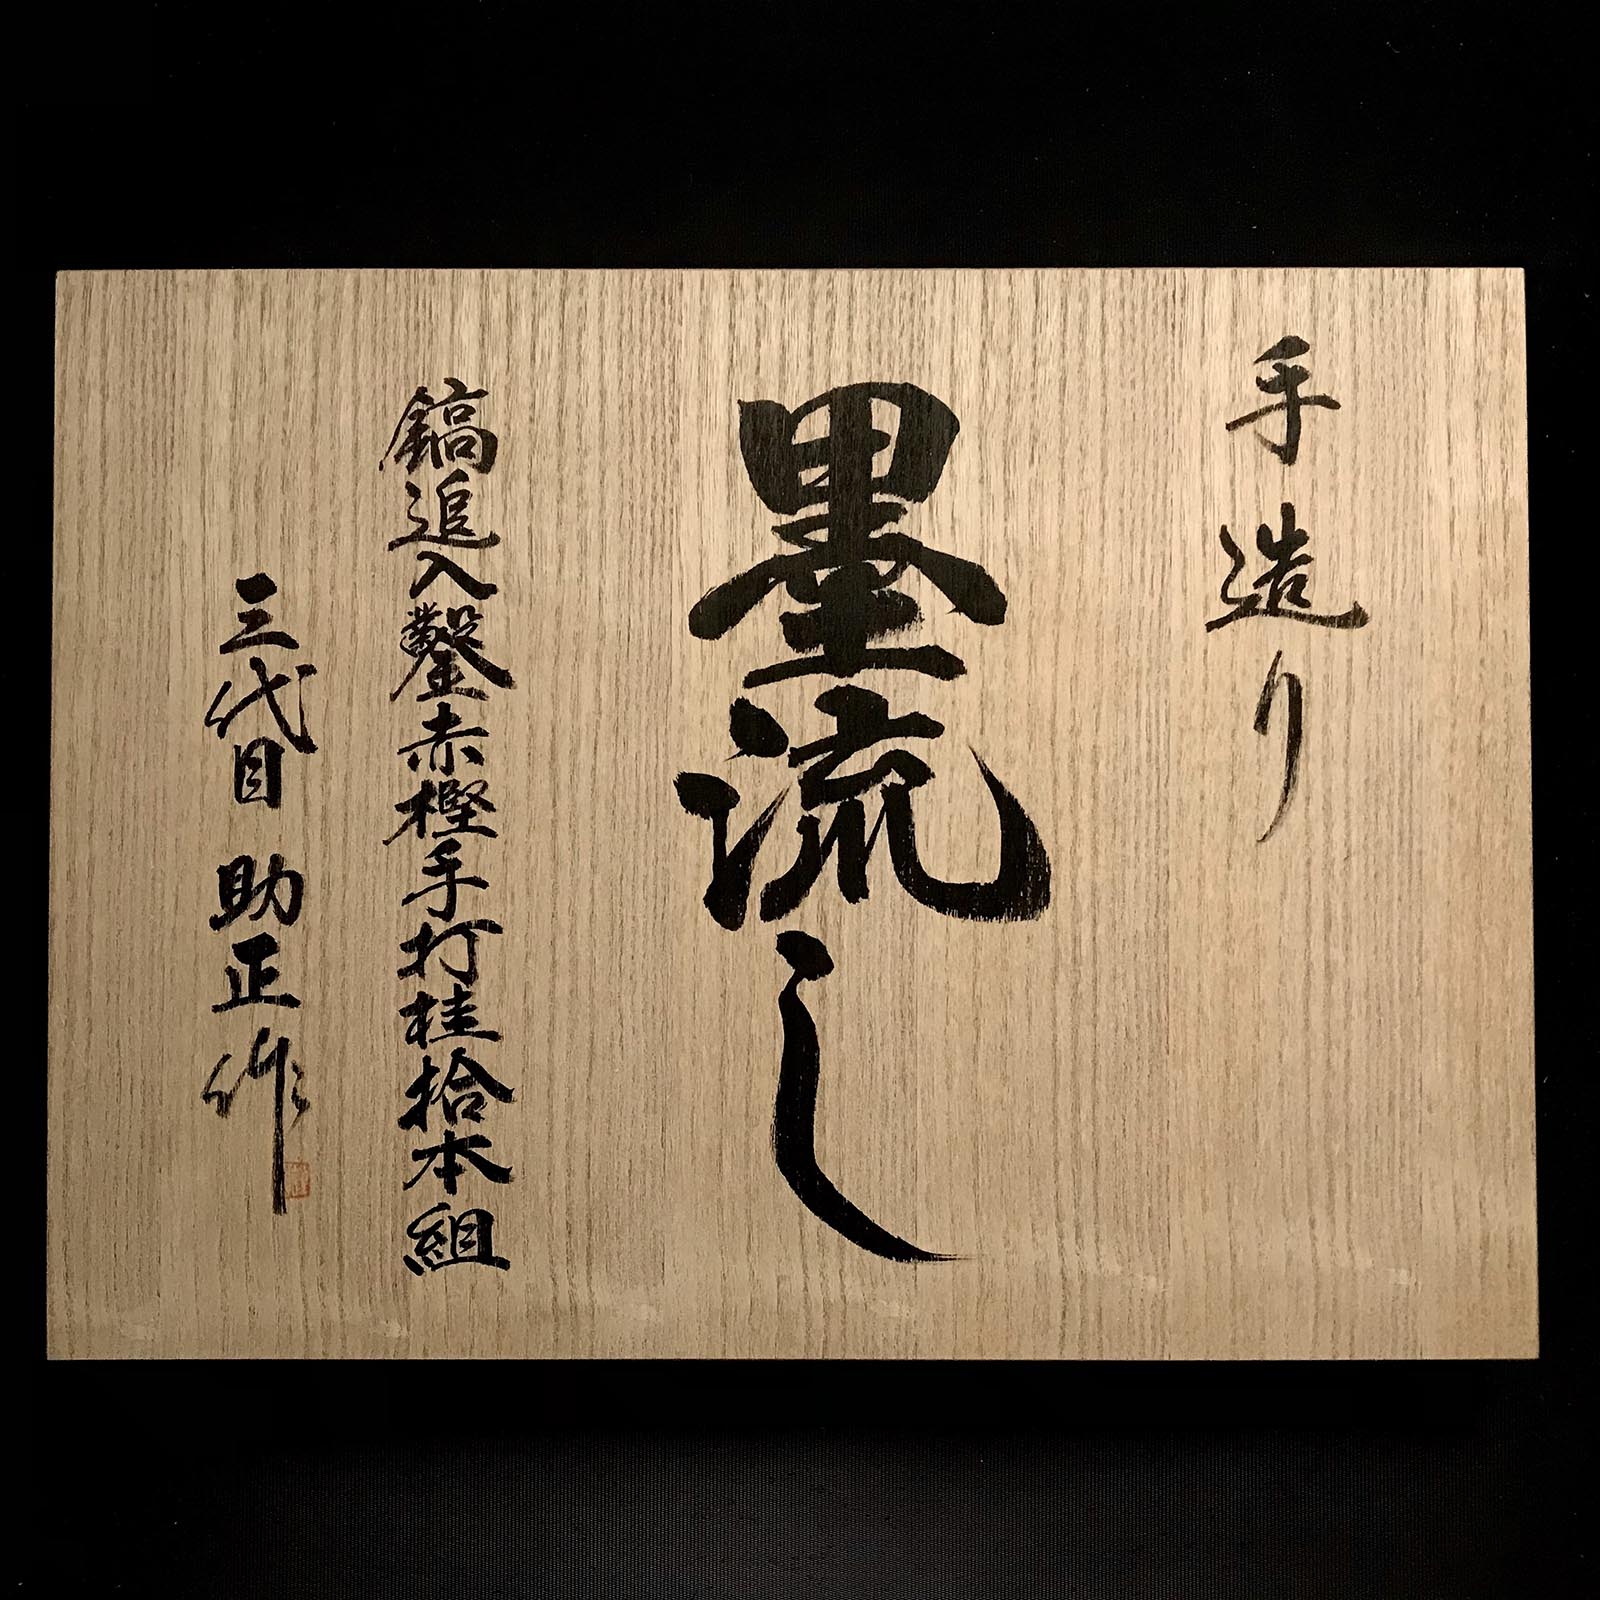 手造り
墨流し
鎬追入鑿赤樫手打桂拾本組
三代目 助正作